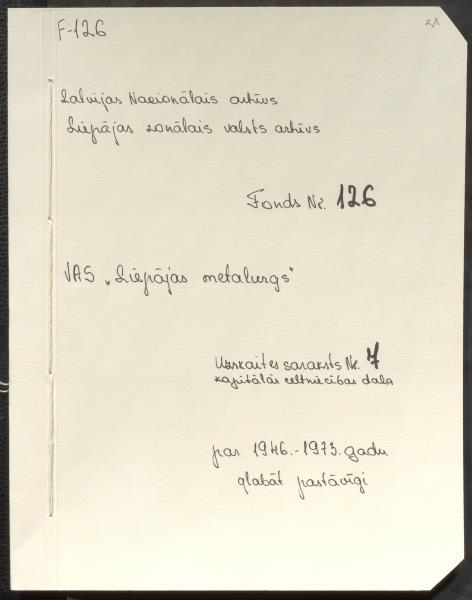 F-126
2x
Latvijas Nacionālais arhīvs
Liepājas zonālais valsts arhīvs
Fonds Nr. 126
VAS „Liepājas metalurgs"
Uzskaites saraksts Nr. 7
kapitālās celtniecības daļa
par 1946.-1973. gadu
glabāt pastāvīgi